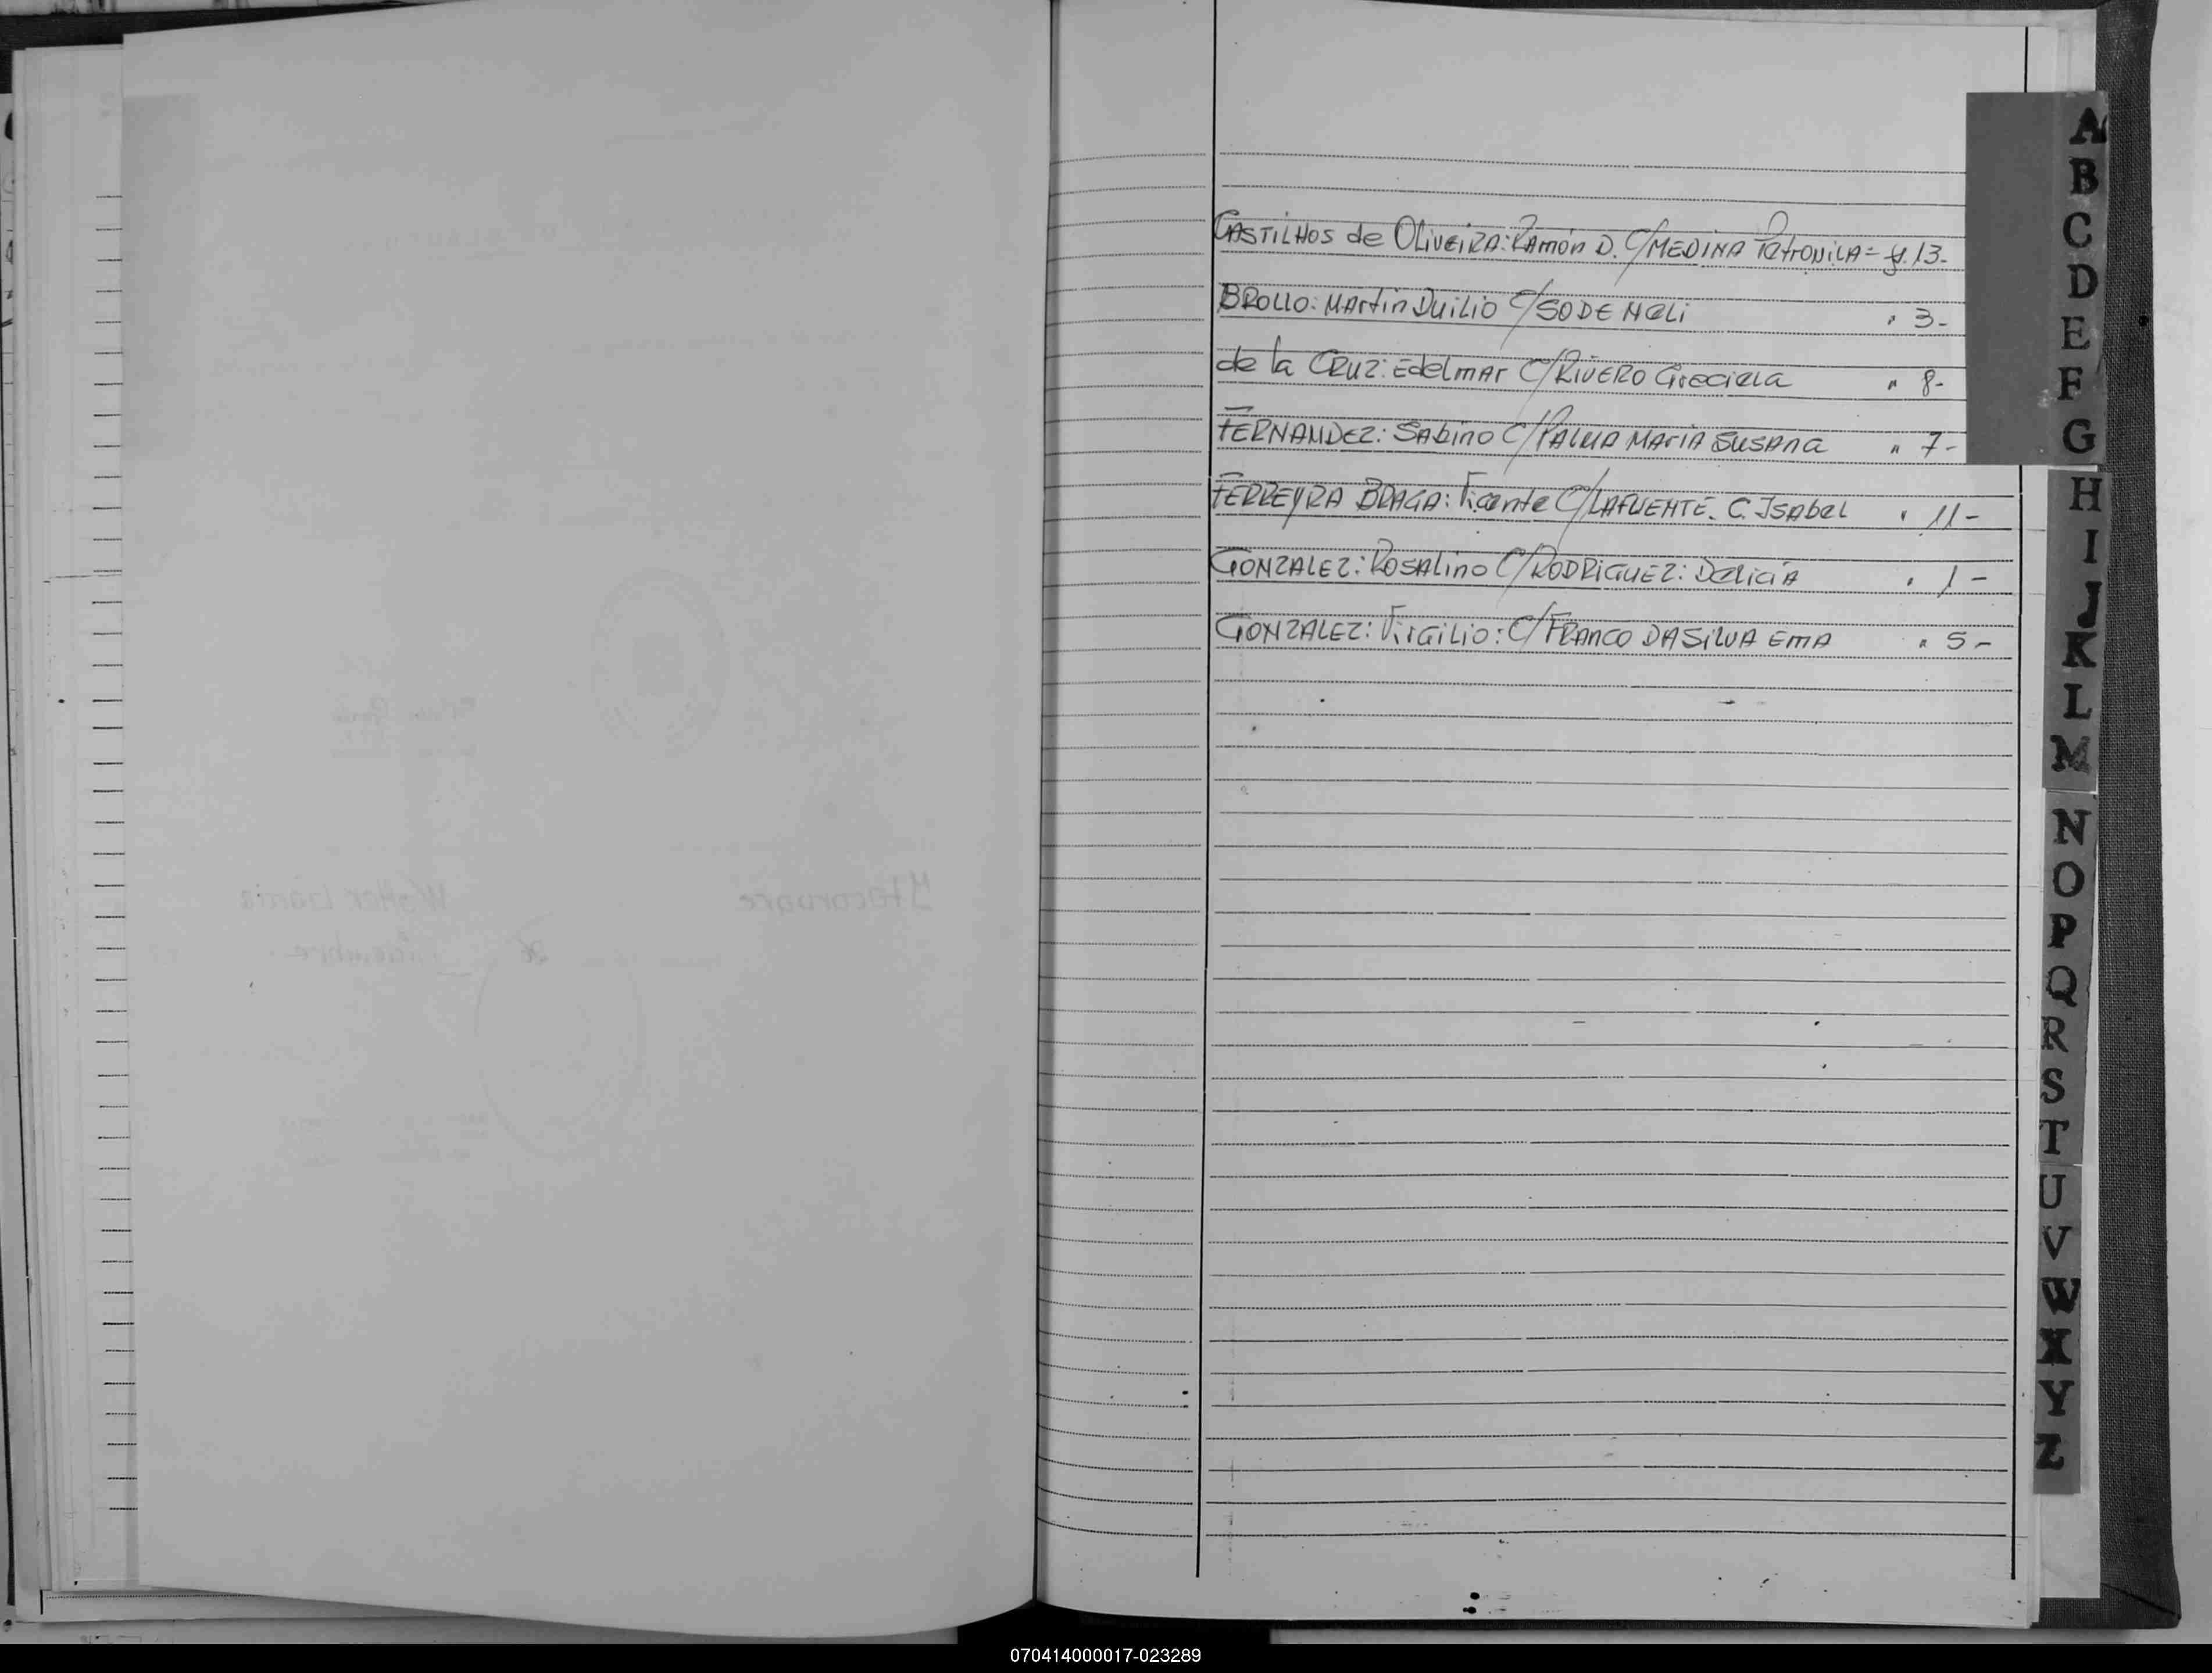 CASTILHOS de OLiVEiRA: RAMÓN D. C/MEDiNA PEtRONiLA = f. 13-
BROLLO: MARtin DUiLiO C/SODE NELi " 3-
de la CRUZ: EdelmAr C/RiVERO Graciela " 8-
FERNANDEZ: SAbino C/PALMA MARiA SUSAna " 7-
FERREYRA BRAGA: Vicente C/LAFUENTE. C. ISAbel " 11-
GONZALEZ: ROSAlino C/RODRiGUEZ: DeliciA " 1-
GONZALEZ: ViRGiLiO: C/FRANCO DASiLVA EMA " 5-
A
B
C
D
E
F
G
H
I
J
K
L
M
N
O
P
Q
R
S
T
U
V
W
X
Y
Z
070414000017-023289